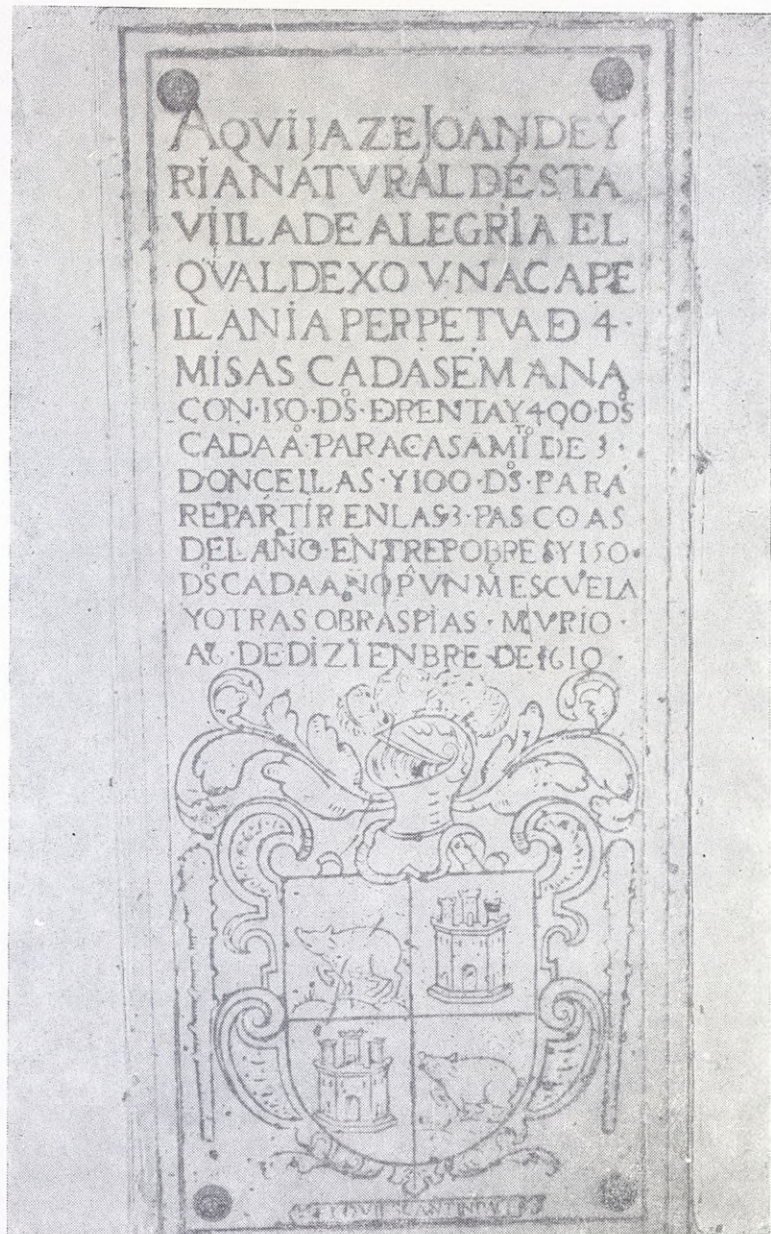 AQVI JAZE JOAN DE Y
RIA NATVRAL DESTA
VILLA DE ALEGRIA EL
QVAL DEXO VNA CAPE
LLANIA PERPETVA D 4·
MISAS CADA SEMANA
CON·150·DºS·D RENTA Y 400·DºS
CADA Aº·PARA CASAMTO DE 3·
DONCELLAS·Y 100·DºS·PARA
REPARTIR EN LAS 3·PASCOAS
DEL AÑO·ENTRE POBRES Y 150·
DºS CADA AÑO P VN M ESCVELA
Y OTRAS OBRAS PIAS·MVRIO·
A DE DIZIENBRE·DE 1610·